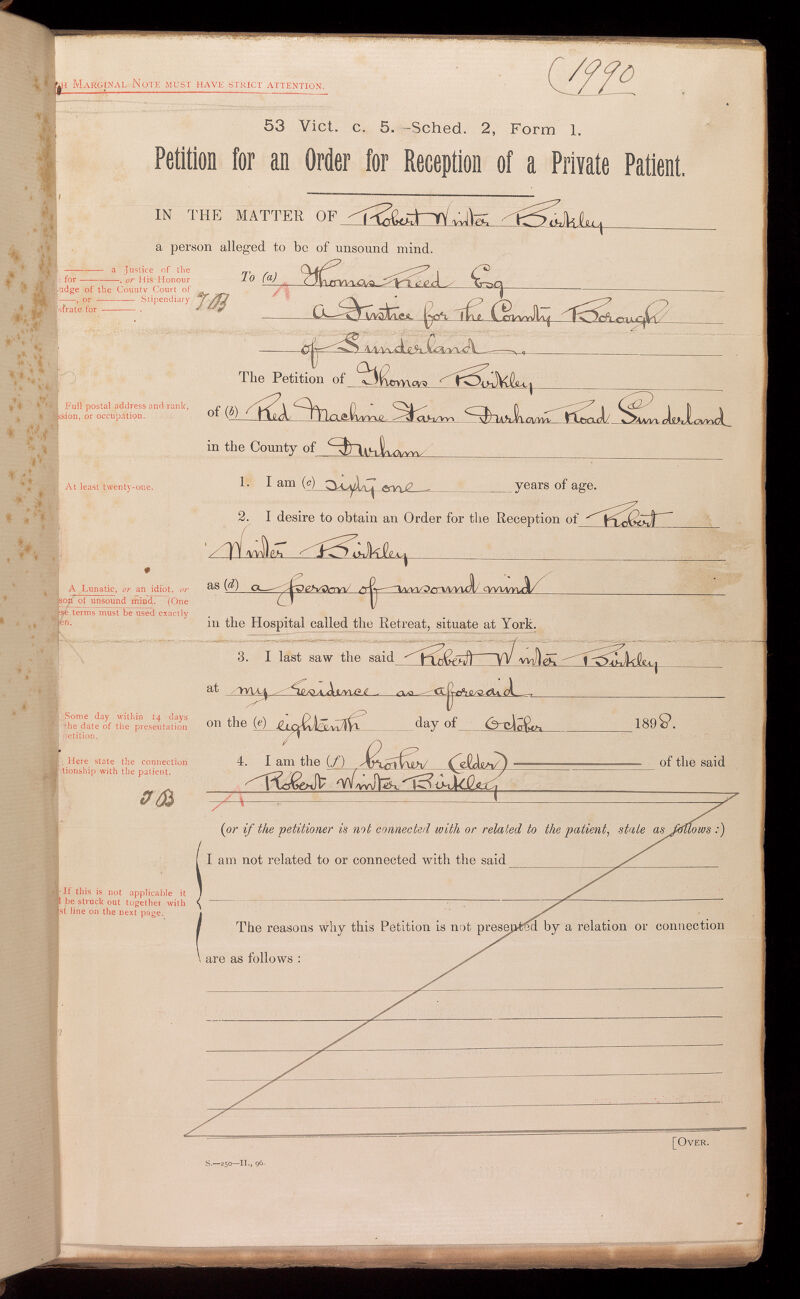 MARGINAL NOTE MUST HAVE STRICT ATTENTION.
1990
53 Vict. c. 5.–Sched. 2, Form 1.
Petition for an Order for Reception of a Private Patient.
IN THE MATTER OF Robert Winter Birkley
a person alleged to be of unsound mind.
a Justice of the
for , or His Honour
Judge of the County Court of
, or Stipendiary
for .
To (a) Thomas Reed Esq
TB
A Justice for the County Borough
of Sunderland.
The Petition of Thomas Birkley
Full postal address and rank,
or occupation.
of (b) Red Machine Farm Durham Road Sunderland
in the County of Durham
At least twenty-one.
1. I am (c) sixty one years of age.
2. I desire to obtain an Order for the Reception of Robert
Winter Birkley
A Lunatic, or an idiot, or
of unsound mind. (One
terms must be used exactly
as (d) a person of unsound mind
in the Hospital called the Retreat, situate at York.
3. I last saw the said Robert Winter Birkley
at my residence as aforesaid.
Some day within 14 days
the date of the presentation
on the (e) eighteenth day of October 1898.
Here state the connection
with the patient.
TB
4. I am the (f) brother (elder) of the said
Robert Winter Birkley
(or if the petitioner is not connected with or related to the patient, state as follows :)
I am not related to or connected with the said
If this is not applicable it
be struck out together with
line on the next page.
The reasons why this Petition is not presented by a relation or connection
are as follows :
[OVER.
S.—250—II., 96.